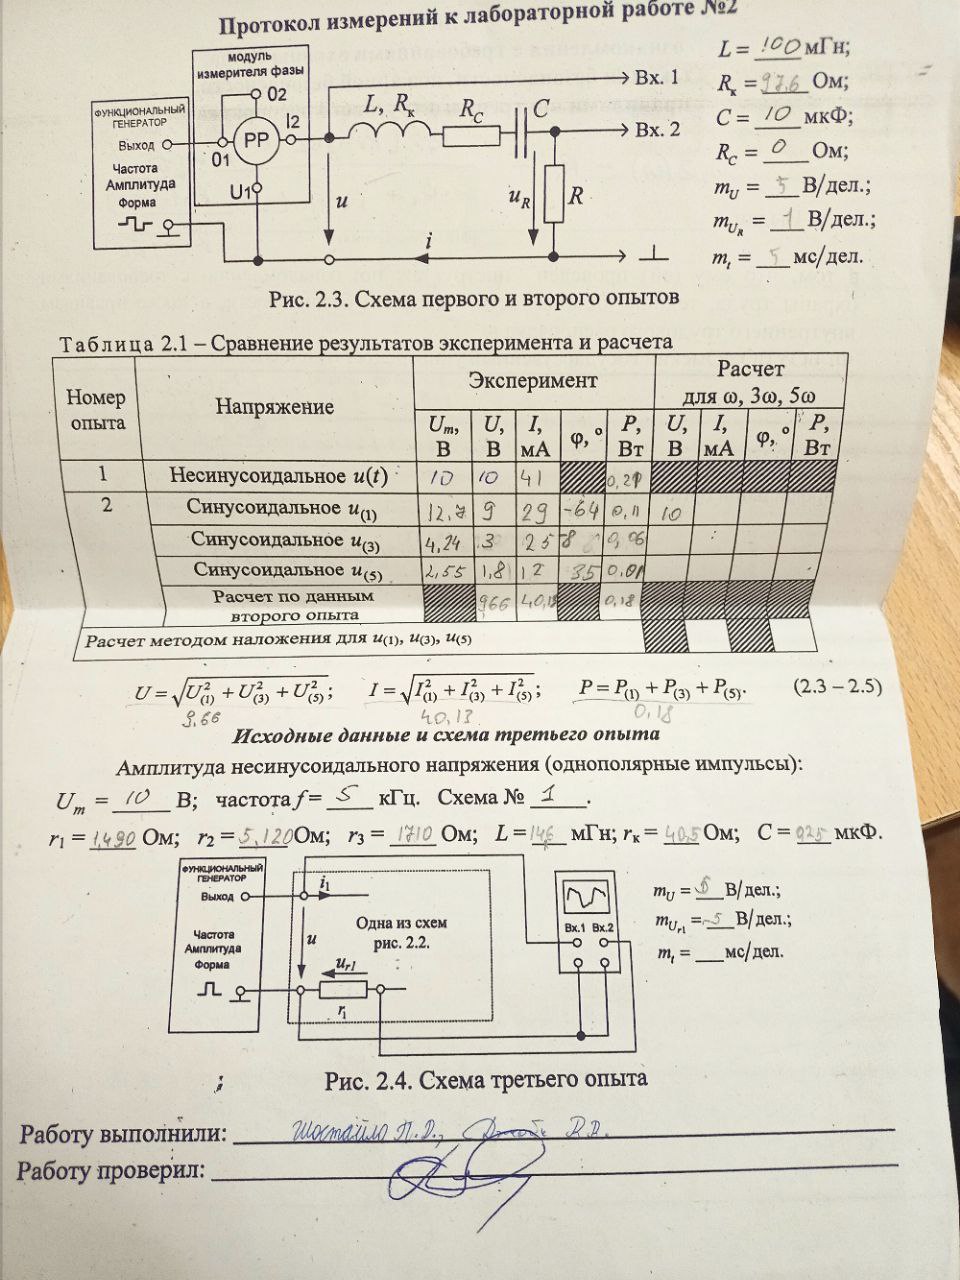 Протокол измерений к лабораторной работе №2
модуль
измерителя фазы
ФУНКЦИОНАЛЬНЫЙ
ГЕНЕРАТОР
Выход
Частота
Амплитуда
Форма
02
I2
PP
01
U1
L, Rк
RC
C
Вх. 1
Вх. 2
u
uR
R
i
L = 100 мГн;
Rк = 97,6 Ом;
C = 10 мкФ;
RC = 0 Ом;
mU = 5 В/дел.;
mUR = 1 В/дел.;
mt = 5 мс/дел.
Рис. 2.3. Схема первого и второго опытов
Таблица 2.1 – Сравнение результатов эксперимента и расчета
Номер опыта
Напряжение
Эксперимент
Расчет для ω, 3ω, 5ω
Um, В U, В I, мА φ, ° P, Вт U, В I, мА φ, ° P, Вт
1 Несинусоидальное u(t) 10 10 41 0,21
2 Синусоидальное u(1) 12,7 9 29 -64 0,11 10
Синусоидальное u(3) 4,24 3 25 -8 0,06
Синусоидальное u(5) 2,55 1,8 12 35 0,01
Расчет по данным второго опыта 966 40,13 0,18
Расчет методом наложения для u(1), u(3), u(5)
U = √U²(1) + U²(3) + U²(5); I = √I²(1) + I²(3) + I²(5); P = P(1) + P(3) + P(5). (2.3 – 2.5)
9,66 40,13 0,18
Исходные данные и схема третьего опыта
Амплитуда несинусоидального напряжения (однополярные импульсы):
Um = 10 В; частота f = 5 кГц. Схема № 1.
r1 = 1,490 Ом; r2 = 5,120 Ом; r3 = 1710 Ом; L = 146 мГн; rк = 40,5 Ом; C = 925 мкФ.
ФУНКЦИОНАЛЬНЫЙ
ГЕНЕРАТОР
Выход
Частота
Амплитуда
Форма
i1
u
Одна из схем
рис. 2.2.
ur1
r1
Вх.1 Вх.2
mU = 5 В/дел.;
mUr1 = 5 В/дел.;
mt = мс/дел.
Рис. 2.4. Схема третьего опыта
Работу выполнили:
Работу проверил: